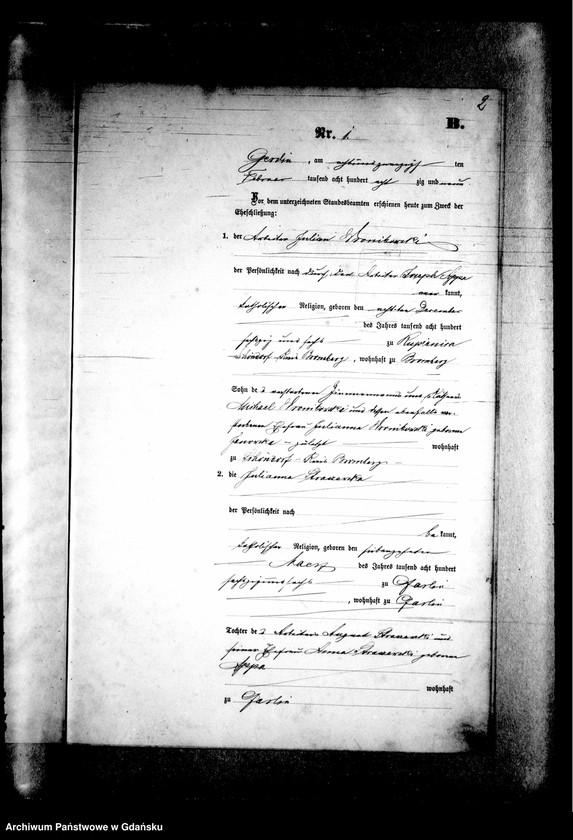 2
B.
Nr. 1.
am achtundzwanzigsten
Februar tausend acht hundert acht zig und neun
Vor dem unterzeichneten Standesbeamten erschienen heute zum Zweck der
Eheschließung:
1. der Arbeiter Julian Wronikowski
der Persönlichkeit nach durch den Arbeiter Joseph
kannt,
katholischer Religion, geboren den achtzehn December
des Jahres tausend acht hundert
sechzig und sechs zu
Schöndorf Kreis Bromberg, wohnhaft zu Bromberg
Sohn des verstorbenen Zimmermanns und
Michael und dessen ebenfalls ver-
storbenen Ehefrau Julianna geborene
zuletzt wohnhaft
zu Schöndorf Kreis Bromberg
2. die Julianna
der Persönlichkeit nach
be kannt,
katholischer Religion, geboren den siebenzehnten
Maerz des Jahres tausend acht hundert
sechszig und sechs zu Garlin
, wohnhaft zu Garlin
Tochter des Arbeiters August und
seiner Ehefrau Anna geborene
wohnhaft
zu Garlin
Archiwum Państwowe w Gdańsku